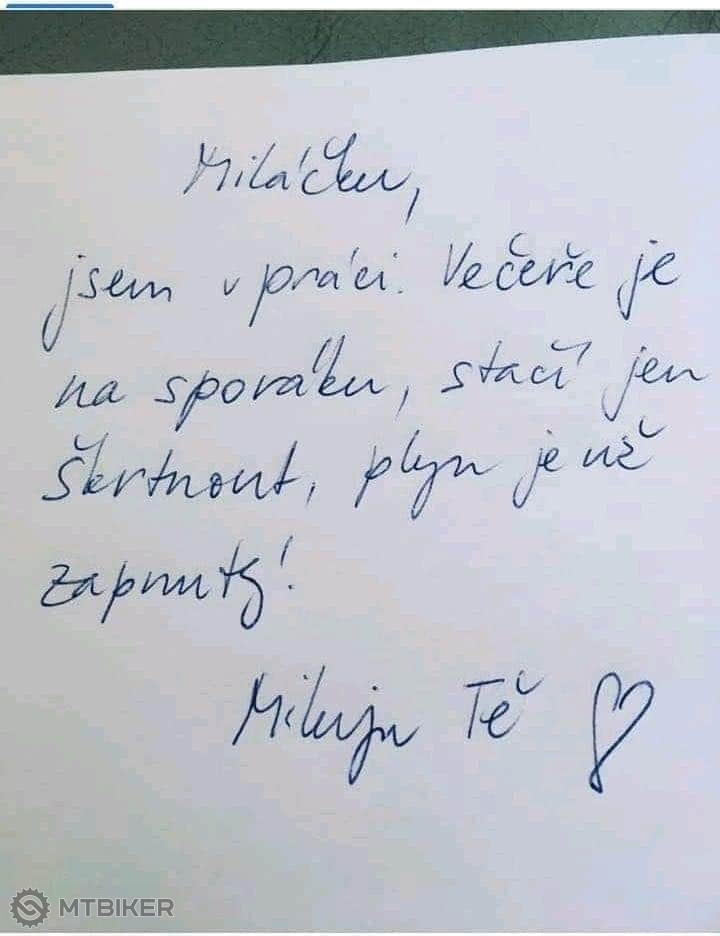 Miláčku,
jsem v práci. Večeře je
na sporáku, stačí jen
škrtnout, plyn je už
zapnutý!
Miluju Tě
MTBIKER